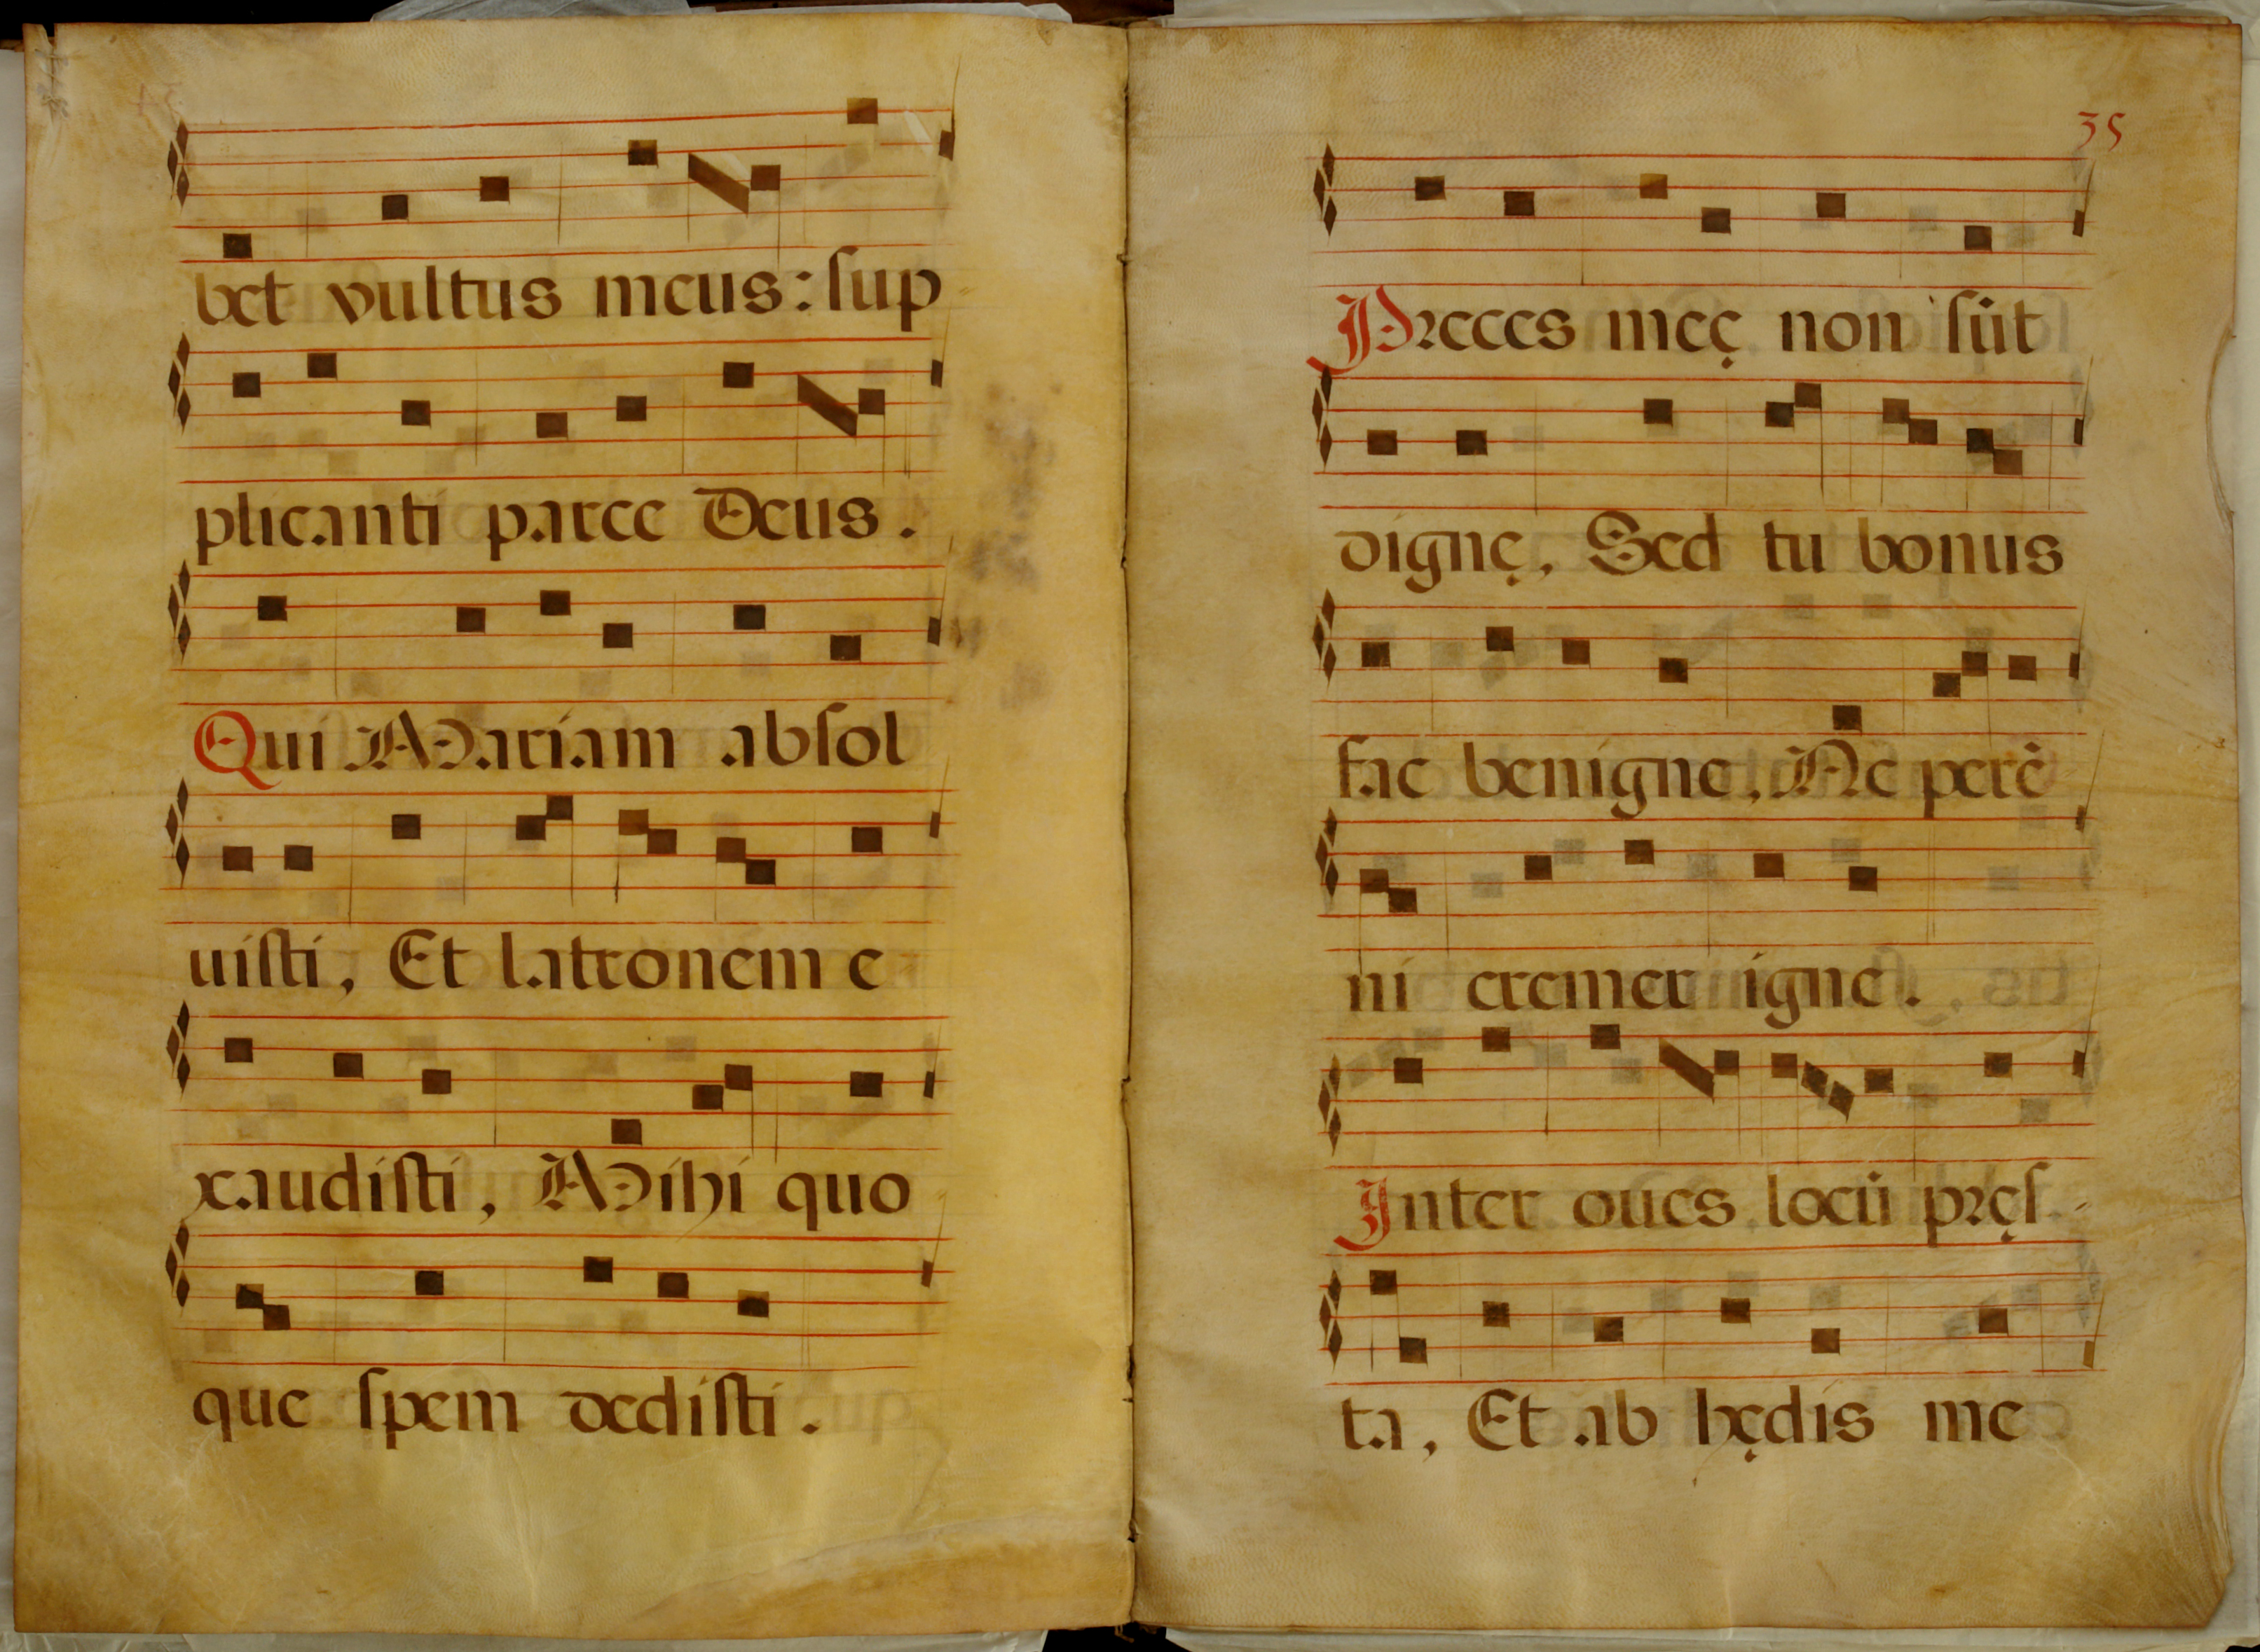 bet vultus meus: ſup
plicanti parce Deus.
Qui Mariam abſol
uiſti, Et latronem e
xaudiſti, Mihi quo
que ſpem dediſti.
35
Preces meę non ſūt
dignę, Sed tu bonus
fac benigne, Ne perē
ni cremer igne.
Inter oues locū pręſ-
ta, Et ab hędis me